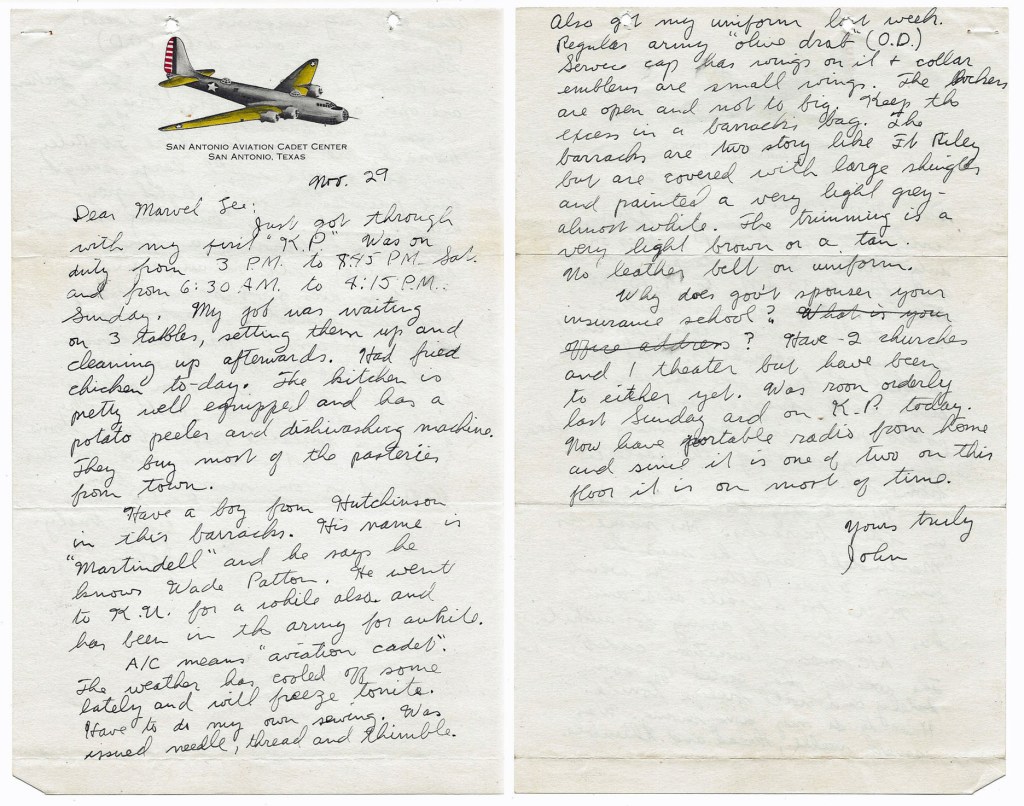 SAN ANTONIO AVIATION CADET CENTER
SAN ANTONIO, TEXAS
Nov. 29
Dear Marvel Lee:
Just got through
with my first "K.P." Was on
duty from 3 P.M. to 8:45 P.M. Sat.
and from 6:30 A.M. to 4:15 P.M.
Sunday. My job was waiting
on 3 tables, setting them up and
cleaning up afterwards. Had fried
chicken to-day. The kitchen is
pretty well equipped and has a
potato peeler and dishwashing machine.
They buy most of the pasteries
from town.
Have a boy from Hutchinson
in this barracks. His name is
"Martindell" and he says he
knows Wade Patton. He went
to K.U. for a while also and
has been in the army for awhile.
A/C means "aviation cadet".
The weather has cooled off some
lately and will freeze tonite.
Have to do my own sewing. Was
issued needle, thread and thimble.
Also got my uniform last week.
Regular army "olive drab" (O.D.)
Service cap has wings on it + collar
emblems are small wings. The lockers
are open and not to big. Keep the
excess in a barracks bag. The
barracks are two story like Ft Riley
but are covered with large shingles
and painted a very light grey-
almost white. The trimming is a
very light brown or a tan.
No leather belt on uniform.
Why does gov't sponser your
insurance school? What is your
office address? Have 2 churches
and 1 theater but have been
to either yet. Was room orderly
last Sunday and on K.P. today.
Now have portable radio from home
and since it is one of two on this
floor it is on most of time.
Yours truly
John